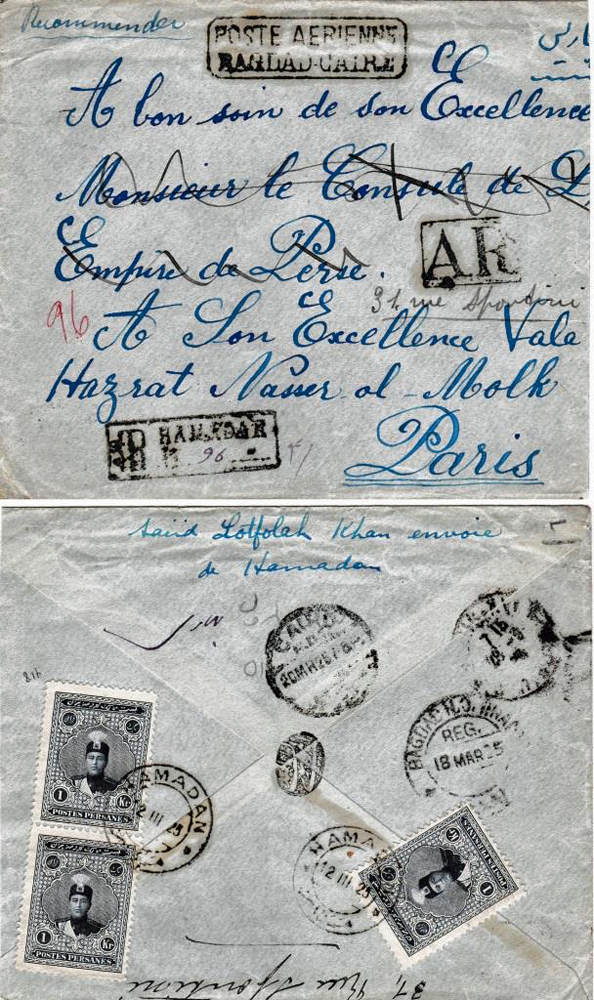 Recommender
POSTE AERIENNE
BAGDAD-CAIRE
A bon soin de son Excellence
Monsieur le Consule de
Empire de Perse.
AR
31, rue Spontini
96
A Son Excellence Vala
Hazrat Nasser ol-Molk
R HAMADAN
96
Paris
Saïid Lotfolah Khan envoie
de Hamadan
CAIRO
20 MR 25
BAGDAD
REG.
18 MAR 25
1 Kr
POSTES PERSANES
HAMADAN
12 III 25
1 Kr
POSTES PERSANES
HAMADAN
12 III 25
1
POSTES PERSANES
31, Rue Spontini